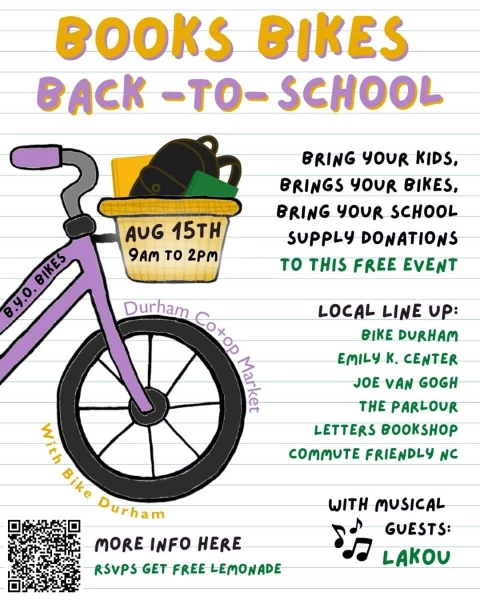 BOOKS BIKES
BACK -TO- SCHOOL
BRING YOUR KIDS,
BRINGS YOUR BIKES,
BRING YOUR SCHOOL
SUPPLY DONATIONS
TO THIS FREE EVENT
AUG 15TH
9AM TO 2PM
B.Y.O. BIKES
Durham Co+op Market
With Bike Durham
LOCAL LINE UP:
BIKE DURHAM
EMILY K. CENTER
JOE VAN GOGH
THE PARLOUR
LETTERS BOOKSHOP
COMMUTE FRIENDLY NC
WITH MUSICAL
GUESTS:
LAKOU
MORE INFO HERE
RSVPS GET FREE LEMONADE